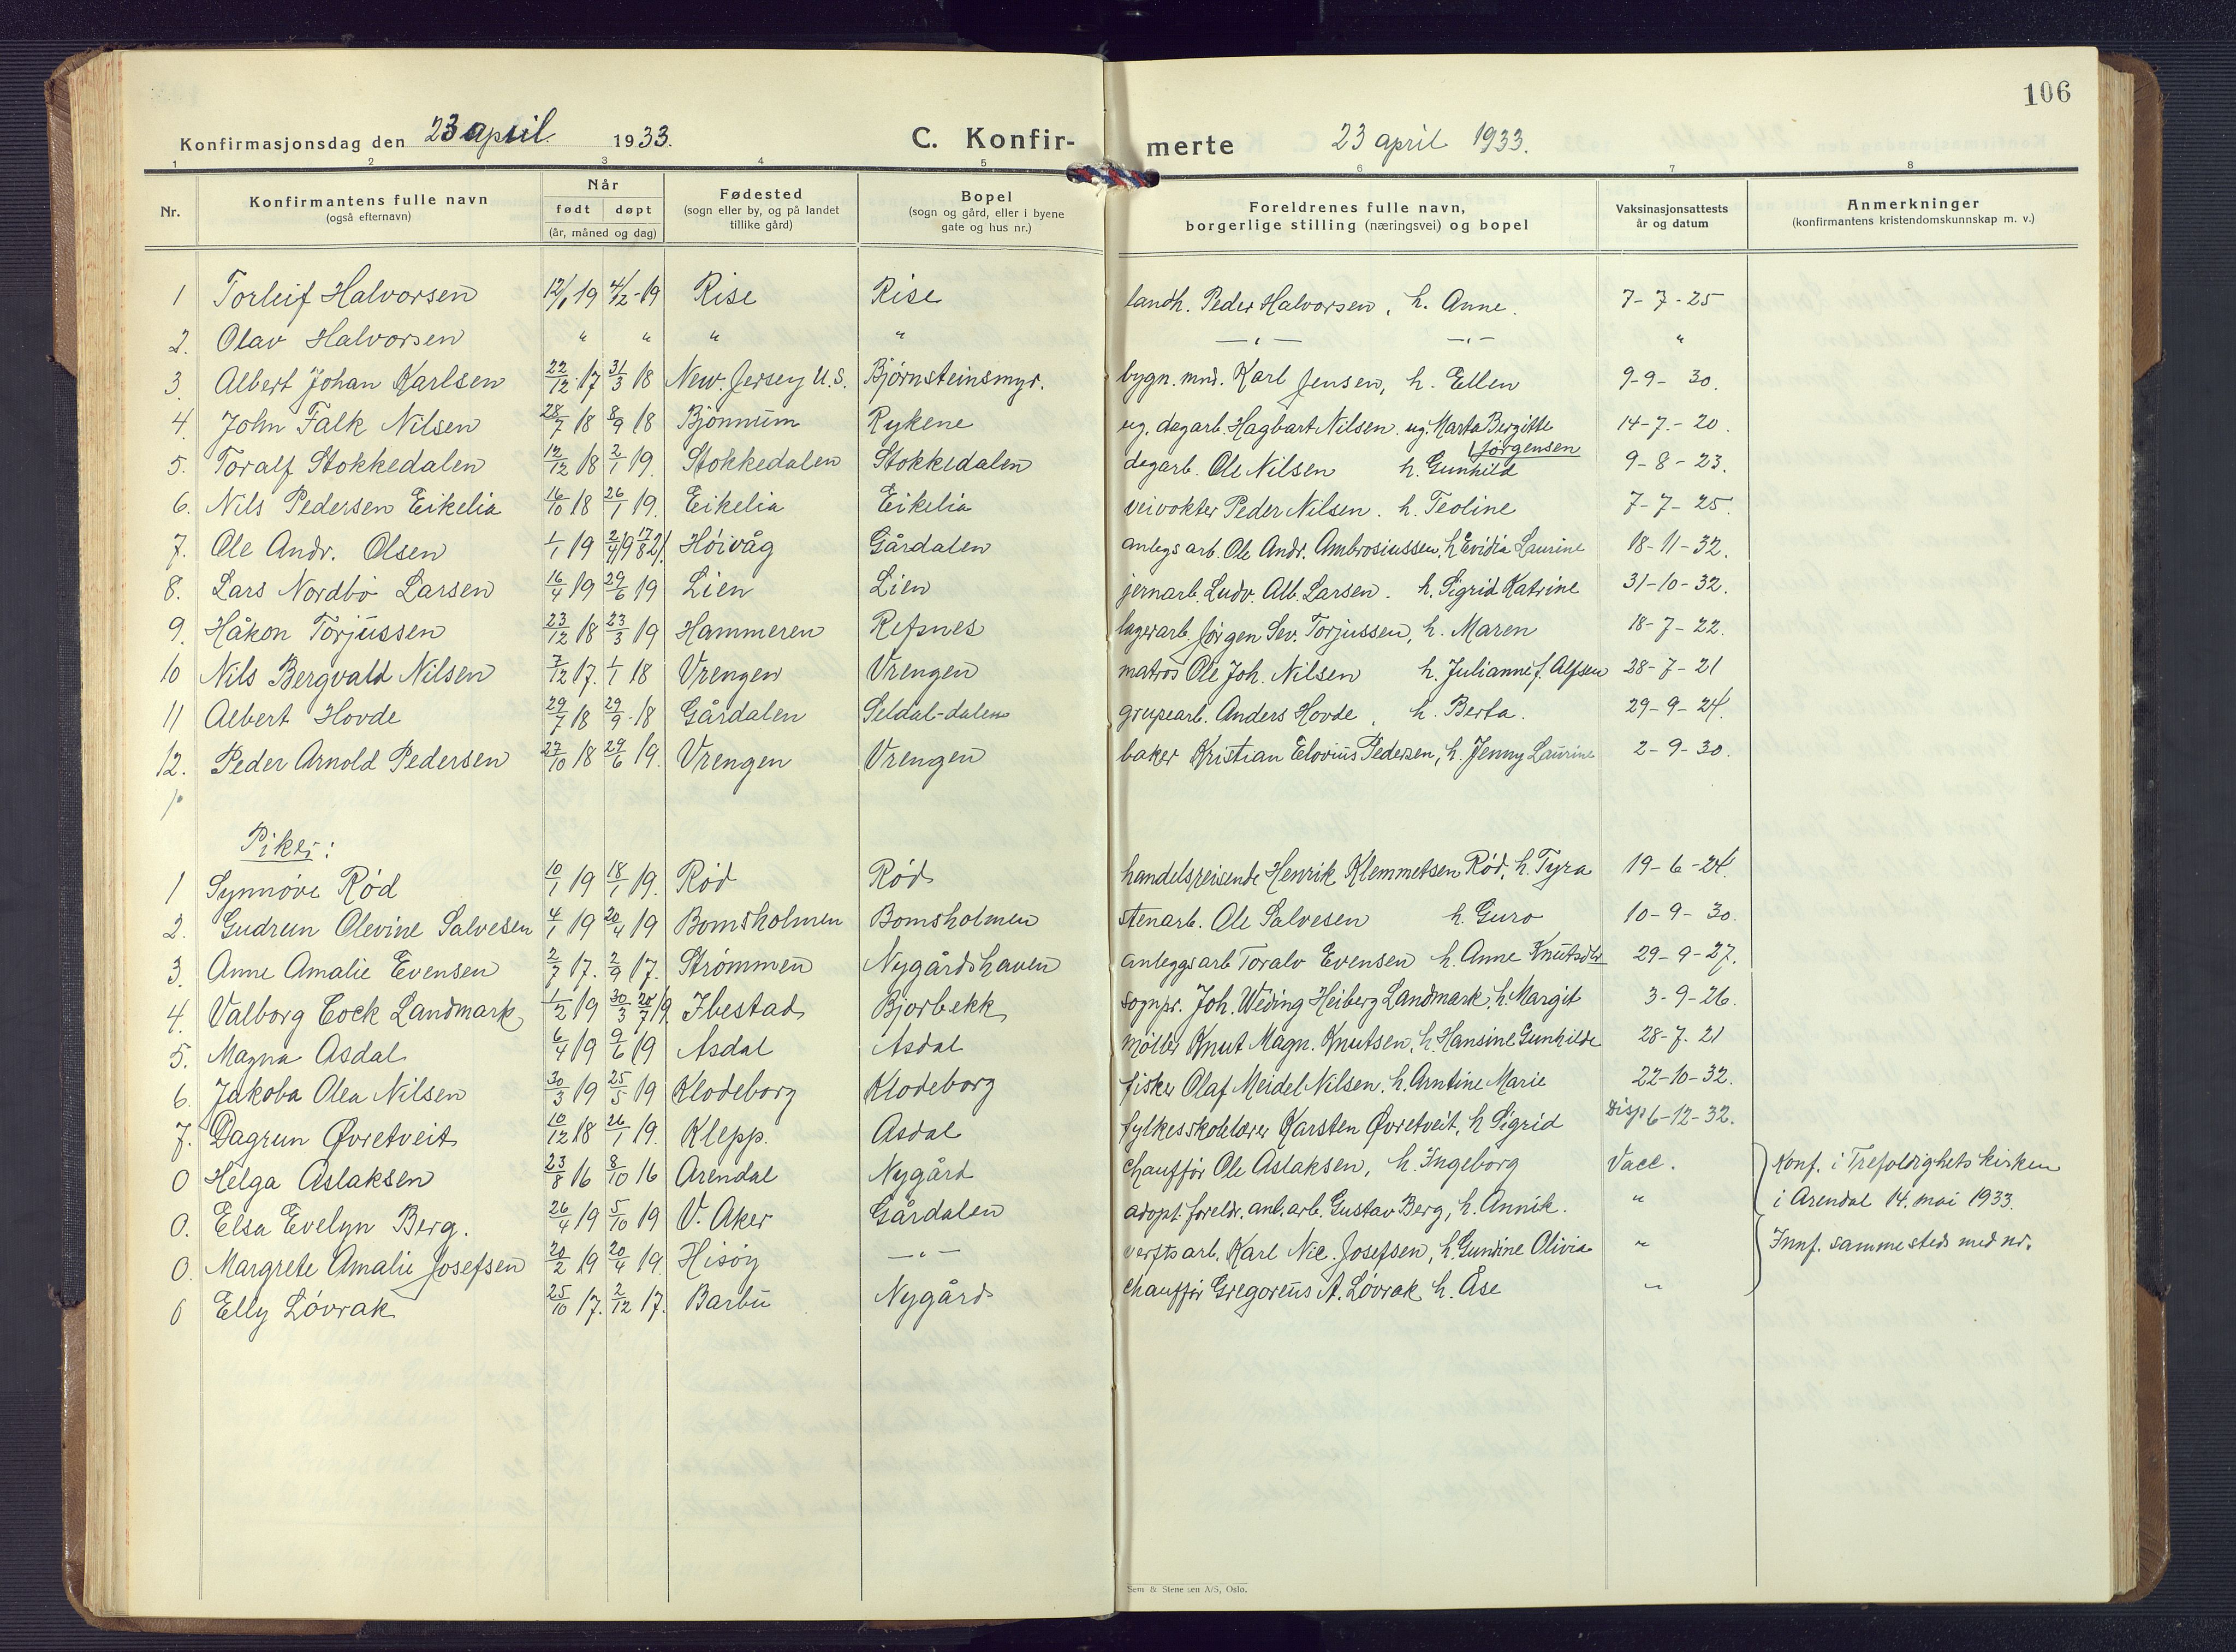 106
Konfirmasjonsdag den 23 april 1933. C. Konfir- merte 23 april 1933.
1 2 3 4 5 6 7 8
Nr. Konfirmantens fulle navn (også efternavn) Når født døpt (år, måned og dag) Fødested (sogn eller by, og på landet tillike gård) Bopel (sogn og gård, eller i byene gate og hus nr.) Foreldrenes fulle navn, borgerlige stilling (næringsvei) og bopel Vaksinasjonsattests år og datum Anmerkninger (konfirmantens kristendomskunnskap m. v.)
1 Torleif Halvorsen 12/1 19 4/2-19 Rise Rise landh. Peder Halvorsen, h. Anne. 7-7-25
2. Olav Halvorsen " " " " —"— —"— "
3. Albert Johan Karlsen 22/12 17 31/3 18 New. Jersey U.S. Bjørnsteinsmyr. bygn. mnd. Karl Jensen, h. Ellen 9-9-30.
4. John Falk Nilsen 28/7 18 8/9 18 Bjønnum Rykene ug. dagarb. Hagbart Nilsen. ug. Marta Bergitte Jørgensen 14-7-20.
5. Toralf Stokkedalen 12/12 18 2/1 19. Stokkedalen Stokkedalen dagarb. Ole Nilsen h. Gunhild 9-8-23.
6. Nils Pedersen Eikelia 16/10 18 26/1 19. Eikelia Eikelia veivokter Peder Nilsen. h. Teoline 7-7-25.
7. Ole Andr. Olsen 1/1 19 2/4 19 17/8 21. Høivåg Gårdalen anlegsarb. Ole Andr. Ambrosiussen, h. Evidia Laurine 18-11-32.
8. Lars Nordbø Larsen 16/4 19 29/6 19 Lien Lien jernarb. Ludv. Alb. Larsen. h. Sigrid Katrine 31-10-32.
9. Håkon Torjussen 23/12 18 23/3 19 Hammeren Refsnes lagerarb. Jørgen Sev. Torjussen, h. Maren 18-7-22.
10 Nils Bergvald Nilsen 7/12 17. 1/1 18 Vrengen Vrengen matros Ole Joh. Nilsen h. Julianne f. Alfsen 28-7-21
11 Albert Hovde 29/7 18 29/9-18 Gårdalen Seldal-dalen grupearb. Anders Hovde, h. Berta. 29-9-24.
12. Peder Arnold Pedersen 27/10 18 29/6 19. Vrengen Vrengen baker Kristian Elovius Pedersen, h. Jenny Laurine 2-9-30.
Piker:
1 Synnøve Rød 10/1 19 18/1 19. Rød Rød handelsreisende Henrik Klemmetsen Rød, h. Tyra 19-6-24.
2. Gudrun Olevine Salvesen 4/1 19 20/4 19 Bomsholmen Bomsholmen stenarb. Ole Salvesen h. Guro 10-9-30.
3. Anne Amalie Evensen 2/7 17. 2/9 17. Strømmen Nygårdshaven anleggsarb Toralv Evensen h. Anne Knutsdtr 29-9-27.
4. Valborg Cock Landmark 1/2 19 30/3 20/7 19. Ibestad Bjorbekk sognpr. Joh. Wéding Heiberg Landmark, h. Margit 3-9-26.
5. Magna Asdal 6/4 19 9/6 19 Asdal Asdal møller Knut Magn. Knutsen, h. Hansine Gunhilde 28-7-21
6. Jakoba Olea Nilsen 30/3 19 25/5 19 Klodeborg Klodeborg fisker Olaf Meidel Nilsen. h. Arntine Marie 22-10-32.
7. Dagrun Øvretveit 10/12 18 26/1 19. Klepp. Asdal fylkesskolelærer Karsten Øvretveit, h Sigrid Disp 6-12-32.
0 Helga Aslaksen 23/8 16 8/10 16 Arendal Nygård chauffør Ole Aslaksen, h. Ingeborg Vacc. Konf. i Trefoldighetskirken
0. Elsa Evelyn Berg. 26/4 19 5/10 19 V. Aker Gårdalen adopt. foreldr. anl. arb. Gustav Berg, h. Annik. " i Arendal 14. mai 1933.
0. Margrete Amalie Josefsen 20/2 19 20/4 19. Hisøy —"— verftsarb. Karl Nic. Josefsen, h. Gundine Olivia " Innf. sammesteds med nr.
0 Elly Løvrak 25/10 17. 2/12 17. Barbu Nygård chauffør Gregoreus A. Løvrak h. Åse "
Sem & Stenersen A/S, Oslo.